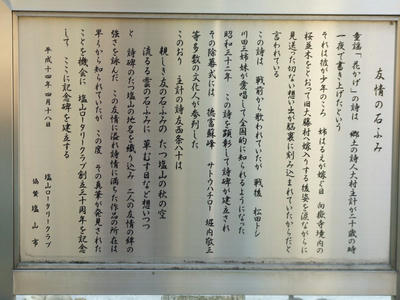 友情の石ふみ
童謡「花かげ」の詩は 郷土の詩人大村主計が二十歳の時
一夜で書き上げたという
それは彼が少年のころ 姉はるえが嫁ぐ日 向嶽寺境内の
桜並木をとおって旧大藤村へ嫁入りする後姿を涙ながらに
見送った切ない想い出が脳裏に刻み込まれていたからだと
言われている
この詩は 戦前から歌われていたが 戦後 松田トシ
川田三姉妹が愛唱して全国的に知られるようになった
昭和三十二年 この詩を顕彰して詩碑が建立され
その除幕式には 徳富蘇峰 サトウハチロー 堀内敬三
等多数の文化人が参列した
このおり 主計の詩友西条八十は
親しき友の石ふみの たつ塩山の秋の空
流るる雲の石ふみに 草むす日など想いつつ
と 詩碑のたつ塩山の地名を織り込み 二人の友情の絆の
強さを詠んだ この友情に溢れ詩情に満ちた作品の所在は
早くから知られていたが この度 その真筆が発見された
ことを機会に 塩山ロータリークラブ創立三十周年を記念
して ここに記念碑を建立する
平成十四年四月十八日
塩山ロータリークラブ
協賛 塩山市